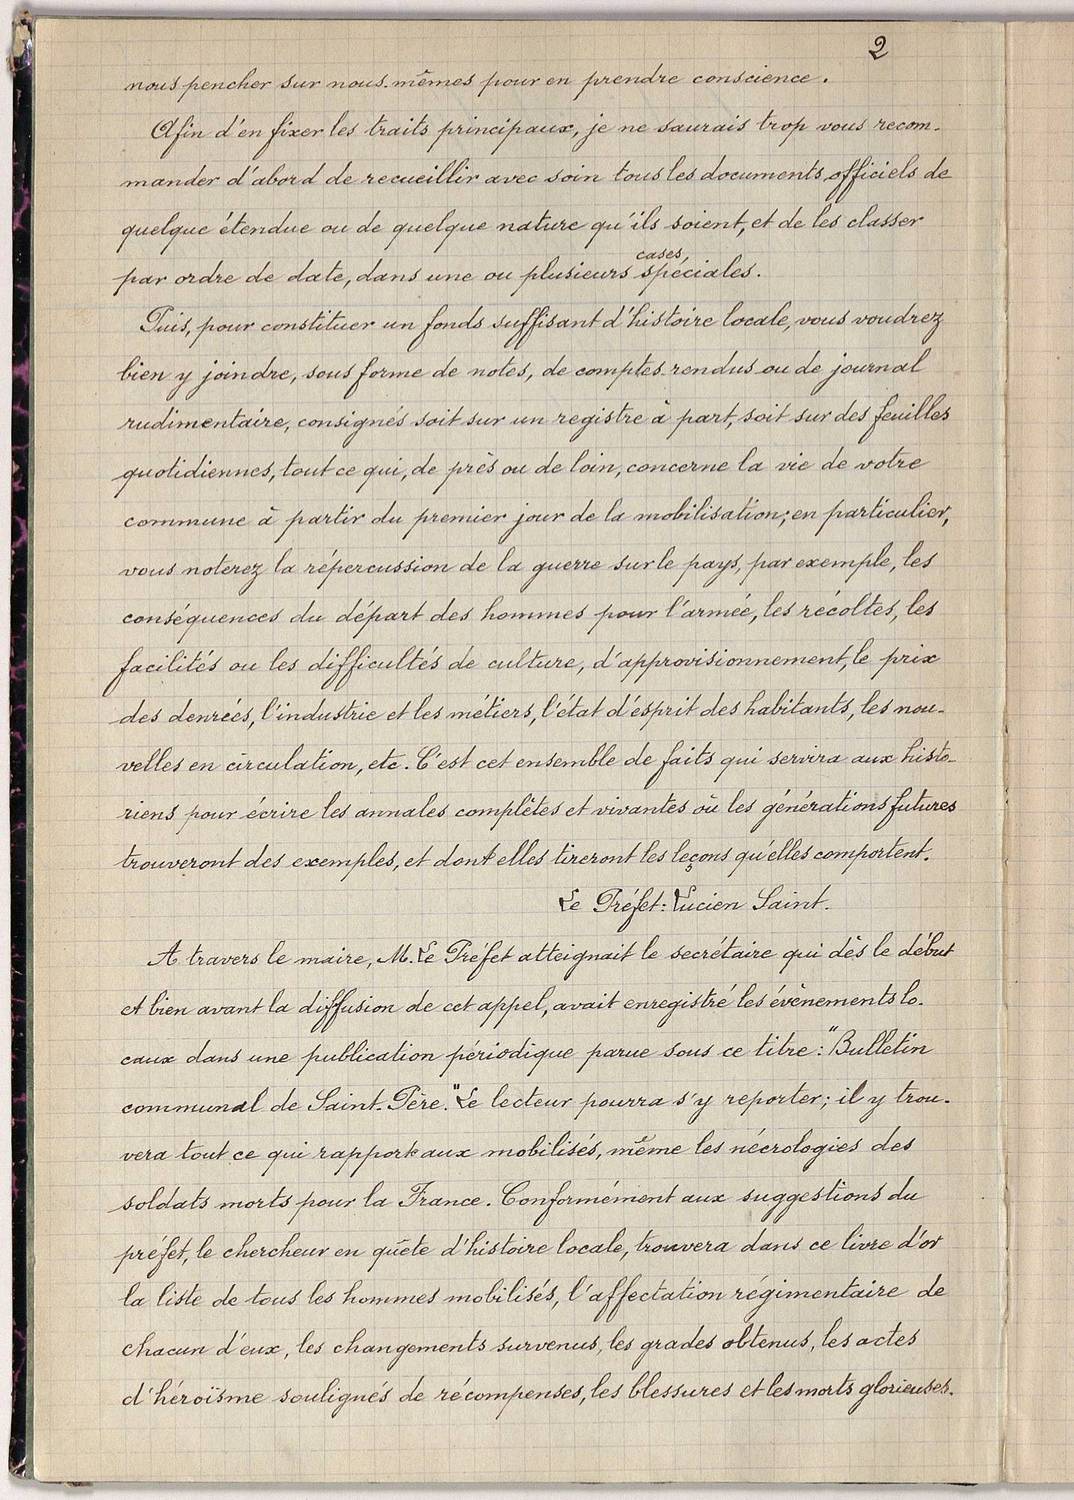 2
nous pencher sur nous-mêmes pour en prendre conscience.
Afin d'en fixer les traits principaux, je ne saurais trop vous recom-
mander d'abord de recueillir avec soin tous les documents officiels de
quelque étendue ou de quelque nature qu'ils soient, et de les classer
par ordre de date, dans une ou plusieurs cases spéciales.
Puis, pour constituer un fonds suffisant d'histoire locale, vous voudrez
bien y joindre, sous forme de notes, de comptes rendus ou de journal
rudimentaire, consignés soit sur un registre à part, soit sur des feuilles
quotidiennes, tout ce qui, de près ou de loin, concerne la vie de votre
commune à partir du premier jour de la mobilisation; en particulier,
vous noterez la répercussion de la guerre sur le pays, par exemple, les
conséquences du départ des hommes pour l'armée, les récoltes, les
facilités ou les difficultés de culture, d'approvisionnement, le prix
des denrées, l'industrie et les métiers, l'état d'ésprit des habitants, les nou-
velles en circulation, etc. C'est cet ensemble de faits qui servira aux histo-
riens pour écrire les annales complètes et vivantes où les générations futures
trouveront des exemples, et dont elles tireront les leçons qu'elles comportent.
Le Préfet: Lucien Saint.
A travers le maire, M. Le Préfet atteignait le secrétaire qui dès le début
et bien avant la diffusion de cet appel, avait enregistré les évènements lo-
caux dans une publication périodique parue sous ce titre: "Bulletin
communal de Saint-Père." Le lecteur pourra s'y reporter; il y trou-
vera tout ce qui rapport aux mobilisés, même les nécrologies des
soldats morts pour la France. Conformément aux suggestions du
préfet, le chercheur en quête d'histoire locale, trouvera dans ce livre d'or
la liste de tous les hommes mobilisés, l'affectation régimentaire de
chacun d'eux, les changements survenus, les grades obtenus, les actes
d'héroïsme soulignés de récompenses, les blessures et les morts glorieuses.